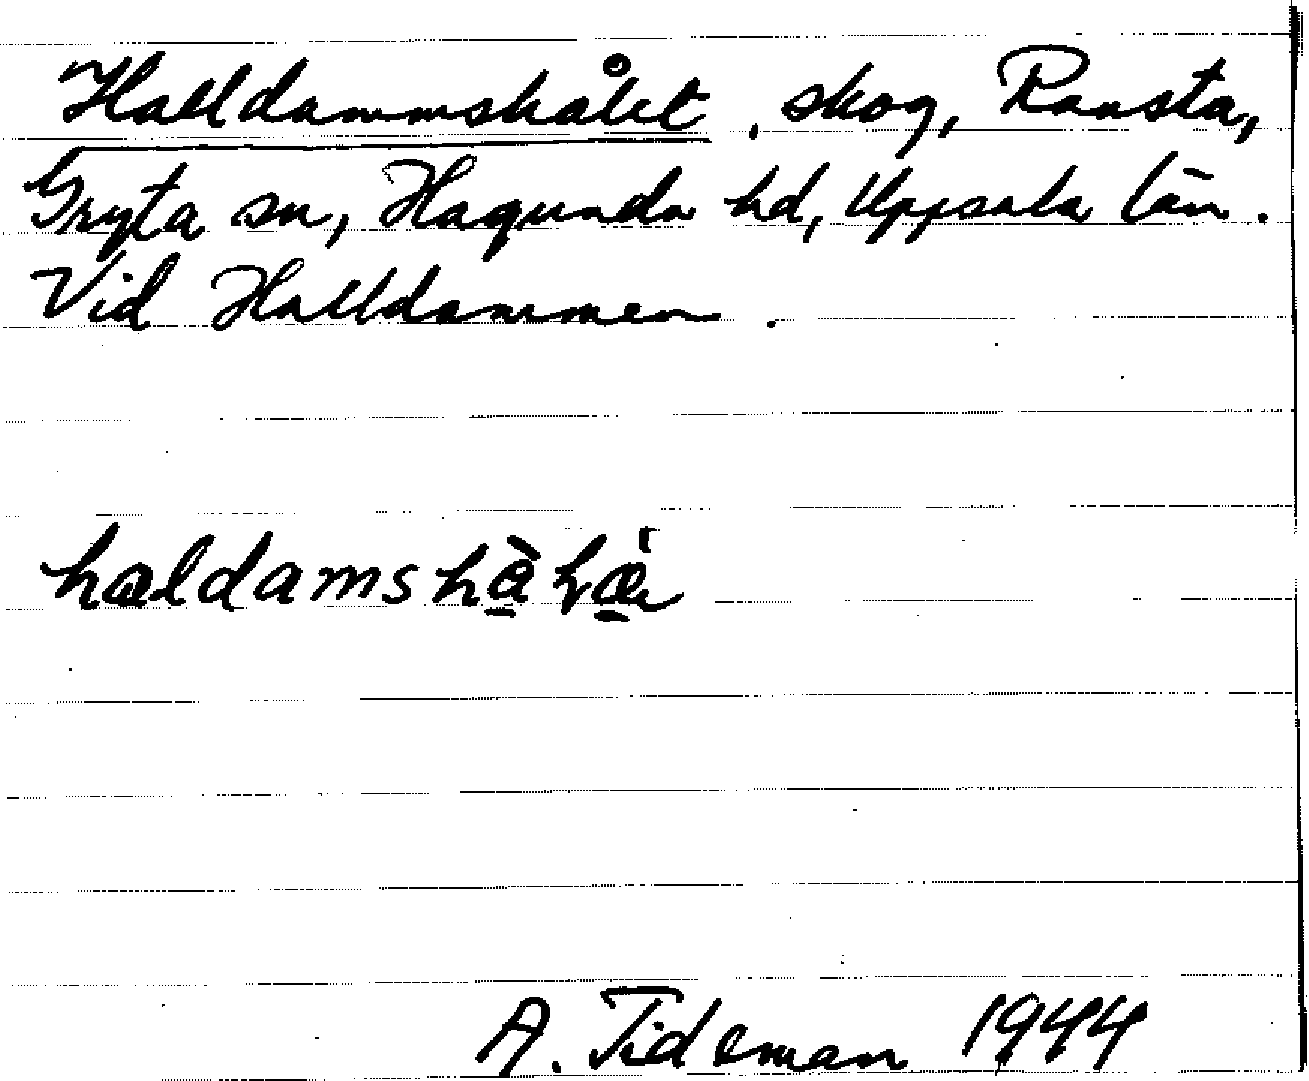 Halldammshålet, skog, Ransta,
Gryta sn, Hagunda hd, Uppsala län.
Vid Halldammen.
A. Tideman 1944